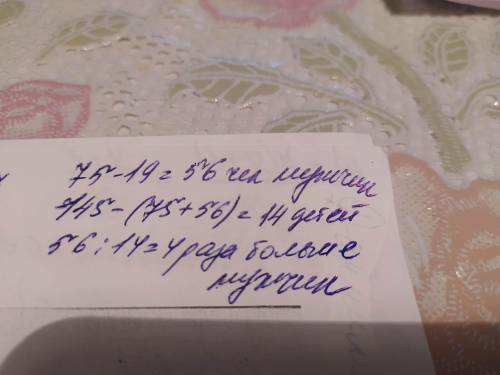 75-19=56 чел мужчин
145-(75+56)=14 детей
56:14=4 раза больше
мужчин